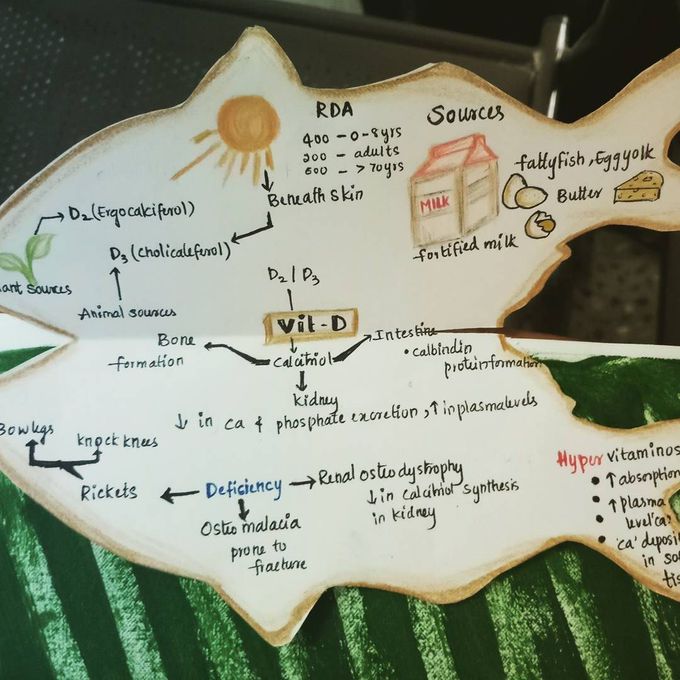 RDA
400 - 0-8yrs
200 - adults
600 - >70yrs
Sources
MILK
fortified milk
fattyfish, Eggyolk
Butter
Beneath skin
D₂ (Ergocakiferol)
D₃ (cholicaleferol)
ant sources
Animal sources
D₂ / D₃
Vit-D
calcitriol
Bone
formation
Intestine
• calbindin
protein formation
kidney
↓ in ca & phosphate excretion, ↑ in plasma levels
Bowlegs
knock knees
Rickets
Deficiency
Renal osteo dystrophy
↓ in calcitriol synthesis
in kidney
Osteo malacia
prone to
fracture
Hyper vitaminos
• ↑ absorption
• ↑ plasma
level 'ca'
• 'ca' deposi
in so
tis